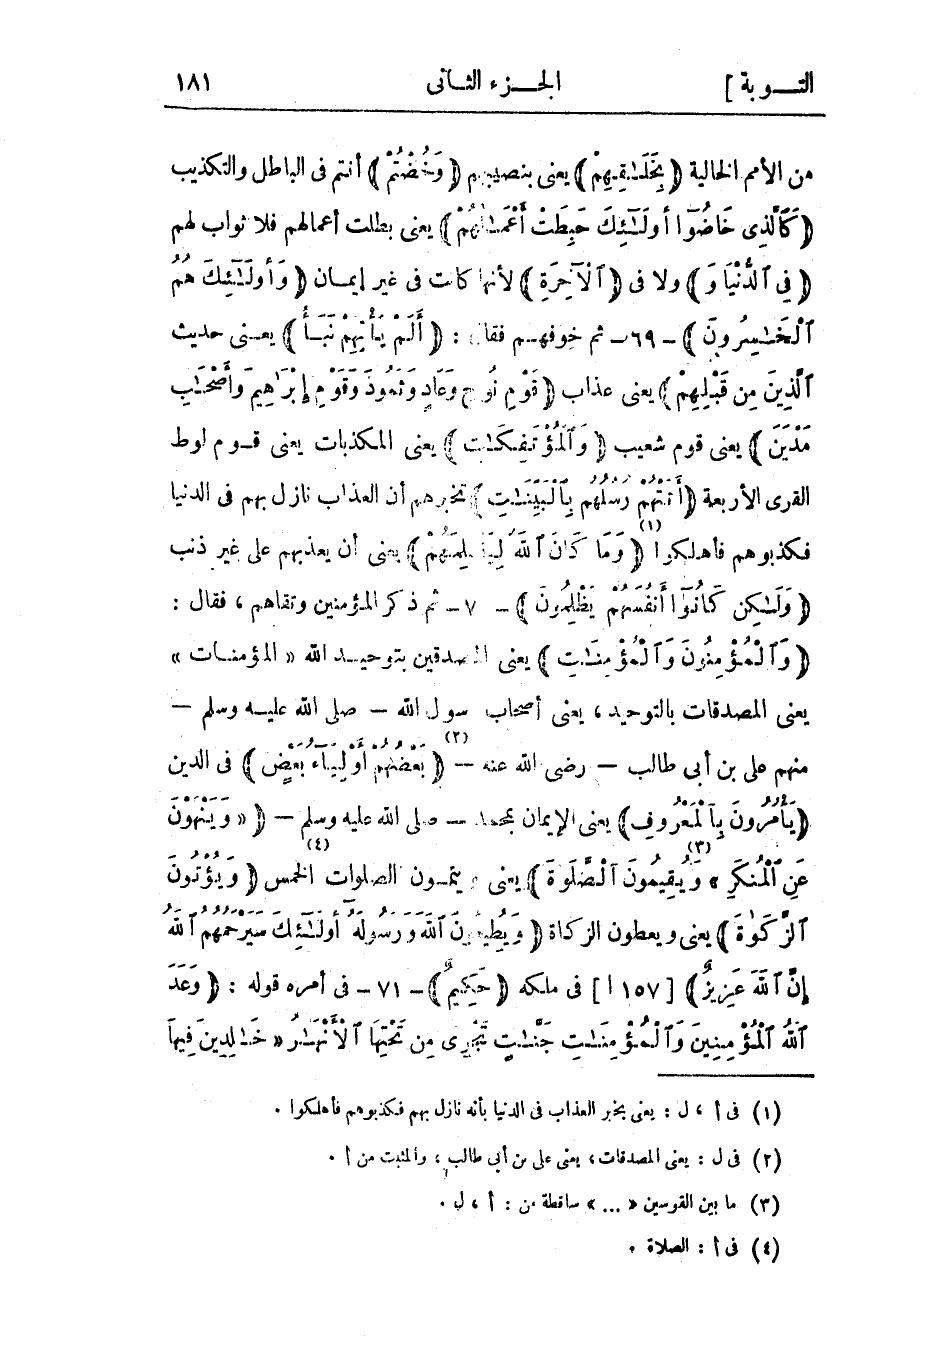 التـــوبة ] الجـــزء الثـانى ١٨١
من الأمم الخالية ﴿ بِخَلَـٰقِهِمْ ﴾ يعنى بنصيبهم ﴿ وَخُضْتُمْ ﴾ أنتم فى الباطل والتكذيب
﴿ كَالَّذِى خَاضُوٓا أُولَـٰٓئِكَ حَبِطَتْ أَعْمَـٰلُهُمْ ﴾ يعنى بطلت أعمالهم فلا ثواب لهم
﴿ فِى ٱلدُّنْيَا وَ ﴾ ولا فى ﴿ ٱلْآخِرَةِ ﴾ لأنها كانت فى غير إيمـان ﴿ وَأُولَـٰٓئِكَ هُمُ
ٱلْخَـٰسِرُونَ ﴾ - ٦٩ - ثم خوفهـم فقال : ﴿ أَلَمْ يَأْتِهِمْ نَبَأُ ﴾ يعـنى حديث
ٱلَّذِينَ مِن قَبْلِهِمْ ﴾ يعنى عذاب ﴿ قَوْمِ نُوحٍ وَعَادٍ وَثَمُودَ وَقَوْمِ إِبْرَاهِيمَ وَأَصْحَـٰبِ
مَدْيَنَ ﴾ يعنى قوم شعيب ﴿ وَٱلْمُؤْتَفِكَـٰتِ ﴾ يعنى المكذبات يعنى قـوم لوط
القرى الأربعة ﴿ أَتَتْهُمْ رُسُلُهُم بِٱلْبَيِّنَـٰتِ ﴾ تخبرهم أن العذاب نازل بهم فى الدنيا
فكذبوهم فأهلكوا (١) ﴿ وَمَا كَانَ ٱللَّهُ لِيَظْلِمَهُمْ ﴾ يعنى أن يعذبهم على غير ذنب
﴿ وَلَـٰكِن كَانُوٓا أَنفُسَهُمْ يَظْلِمُونَ ﴾ - ٧ - ثم ذكر المؤمنين وتقاهم ، فقال :
﴿ وَٱلْمُؤْمِنُونَ وَٱلْمُؤْمِنَـٰتِ ﴾ يعنى المصدقين بتوحيـد الله « المؤمنـات »
يعنى المصدقات بالتوحيد ، يعنى أصحاب رسول الله — صلى الله عليـه وسلم —
منهم على بن أبى طالب — رضى الله عنه — (٢) ﴿ بَعْضُهُمْ أَوْلِيَآءُ بَعْضٍ ﴾ فى الدين
﴿ يَأْمُرُونَ بِٱلْمَعْرُوفِ ﴾ يعنى الإيمان بمحمد — صلى الله عليه وسلم — ﴿ « وَيَنْهَوْنَ
عَنِ ٱلْمُنكَرِ » (٣) وَيُقِيمُونَ ٱلصَّلَوٰةَ ﴾ يعنى ويتمـون الصلوات (٤) الخمس ﴿ وَيُؤْتُونَ
ٱلزَّكَوٰةَ ﴾ يعنى ويعطون الزكاة ﴿ وَيُطِيعُونَ ٱللَّهَ وَرَسُولَهُٓ أُولَـٰٓئِكَ سَيَرْحَمُهُمُ ٱللَّهُ
إِنَّ ٱللَّهَ عَزِيزٌ ﴾ [ ١٥٧ أ ] فى ملكه ﴿ حَكِيمٌ ﴾ - ٧١ - فى أمره قوله : ﴿ وَعَدَ
ٱللَّهُ ٱلْمُؤْمِنِينَ وَٱلْمُؤْمِنَـٰتِ جَنَّـٰتٍ تَجْرِى مِن تَحْتِهَا ٱلْأَنْهَـٰرُ « خَـٰلِدِينَ فِيهَا
(١) فى أ ، ل : يعنى بخبر العذاب فى الدنيا بأنه نازل بهم فكذبوهم فأهلكوا .
(٢) فى ل : يعنى المصدقات ، يعنى على بن أبى طالب ، والمثبت من أ .
(٣) ما بين القوسين « ... » ساقطة من : أ ، ل .
(٤) فى أ : الصلاة .